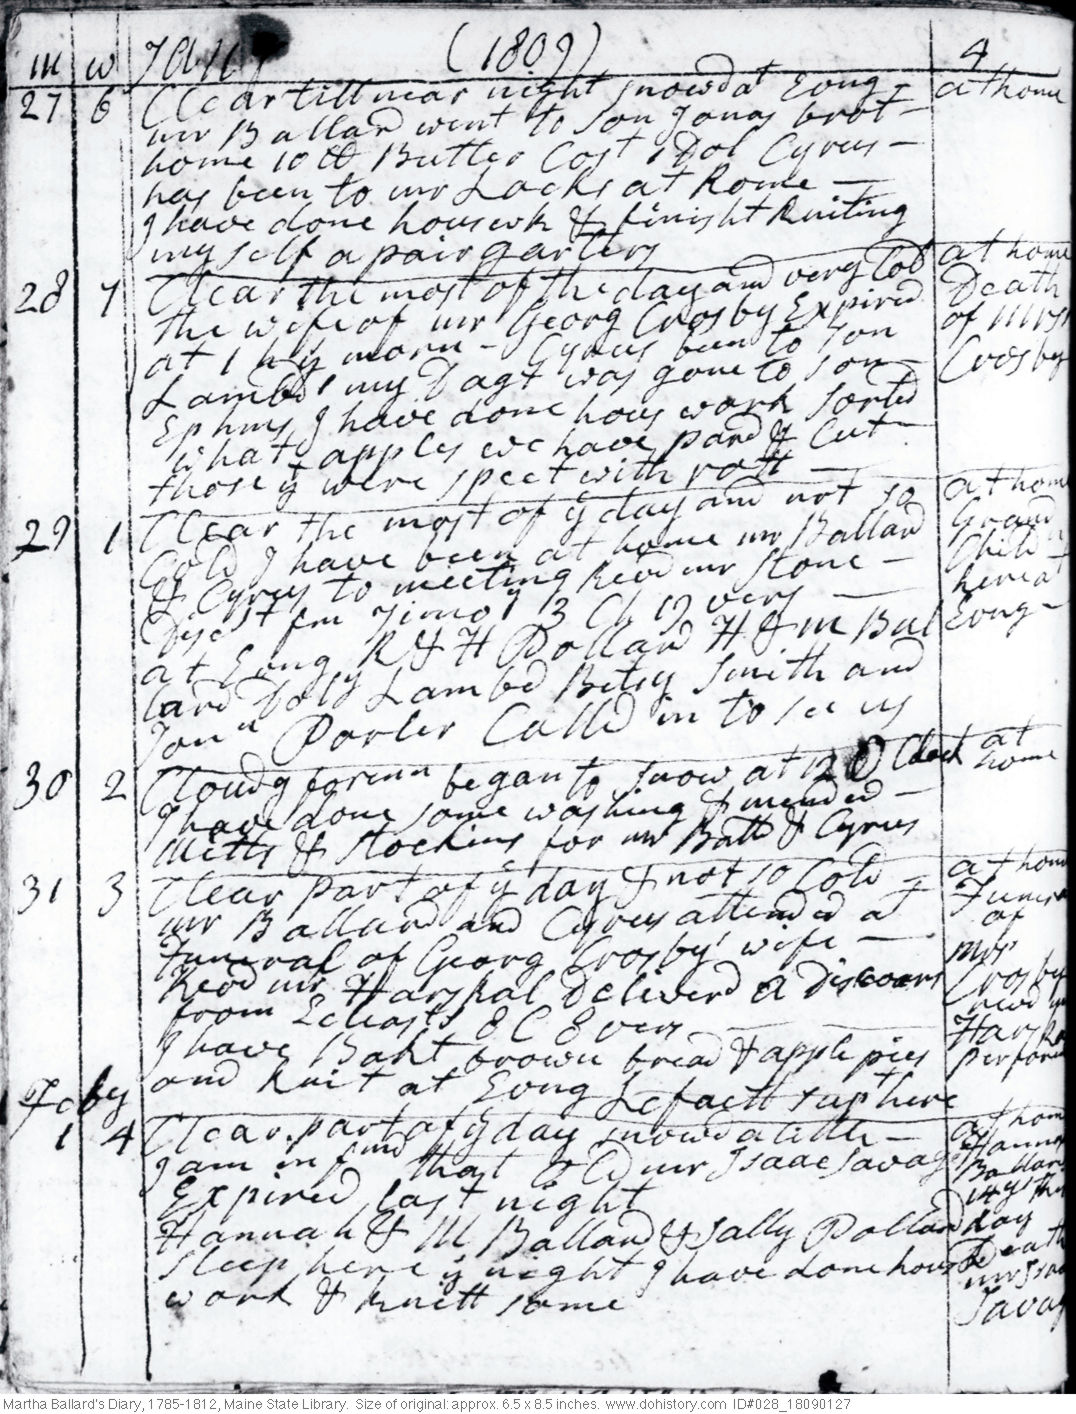 m w Jany (1809) 4
27 6 Clear till near night snowd at Evng - at home
mr Ballard went to son Jonas brot -
home 10 lb Butter Cost 1 Dol Cyrus -
has been to mr Locks at Rome -
I have done housewk & finisht Kniting
my self a pair garters
28 7 Clear the most of the day and very Cold at home
the wife of mr Georg Crosby Expired Death
at 1 h ys morn - Cyrus been to son of Mrs
Lambd's my Dagt was gone to son Crosby
Ephms, I have done hous work sorted
what apples we have, pard & Cut -
those yt were spect with rott -
29 1 Clear the most of ys day and not so at home
Cold I have been at home mr Ballard Grand
& Cyrus to meeting Revd mr Stone - Child n
Discst fm Timoy 3 Ch 17 vers - here at
at Evng R & H Pollard H & M Bal Evng -
lard Dolly Lambd Betsy Smith and
Jonn Porter Calld in to see us
30 2 Cloudy foren began to snow at 12 O Clock at
I have done some washing & mended - home
Mitts & Stockins for mr Balld & Cyrus
31 3 Clear part of ys day & not so Cold - at home
mr Ballard and Cyrus attended at Funeral
Funeral of Georg Crosby's wife - of
Revd mr Harskal Deliverd a discoars Mrs
from Ecleasts 8 C 8 vers Crosby
I have Bakt brown bread & apple pies revd mr
and Knit at Evng Lefaett sup here
Feby
1 4 Clear part of ys day snowd a little - at home
I am informd that Old mr Isaac Savage Hannah
Expired last night Ballard
Hannah & M Ballard & Sally Pollard day
sleep here ys night I have done house Death
work & Knitt some mr Isaac
Savag